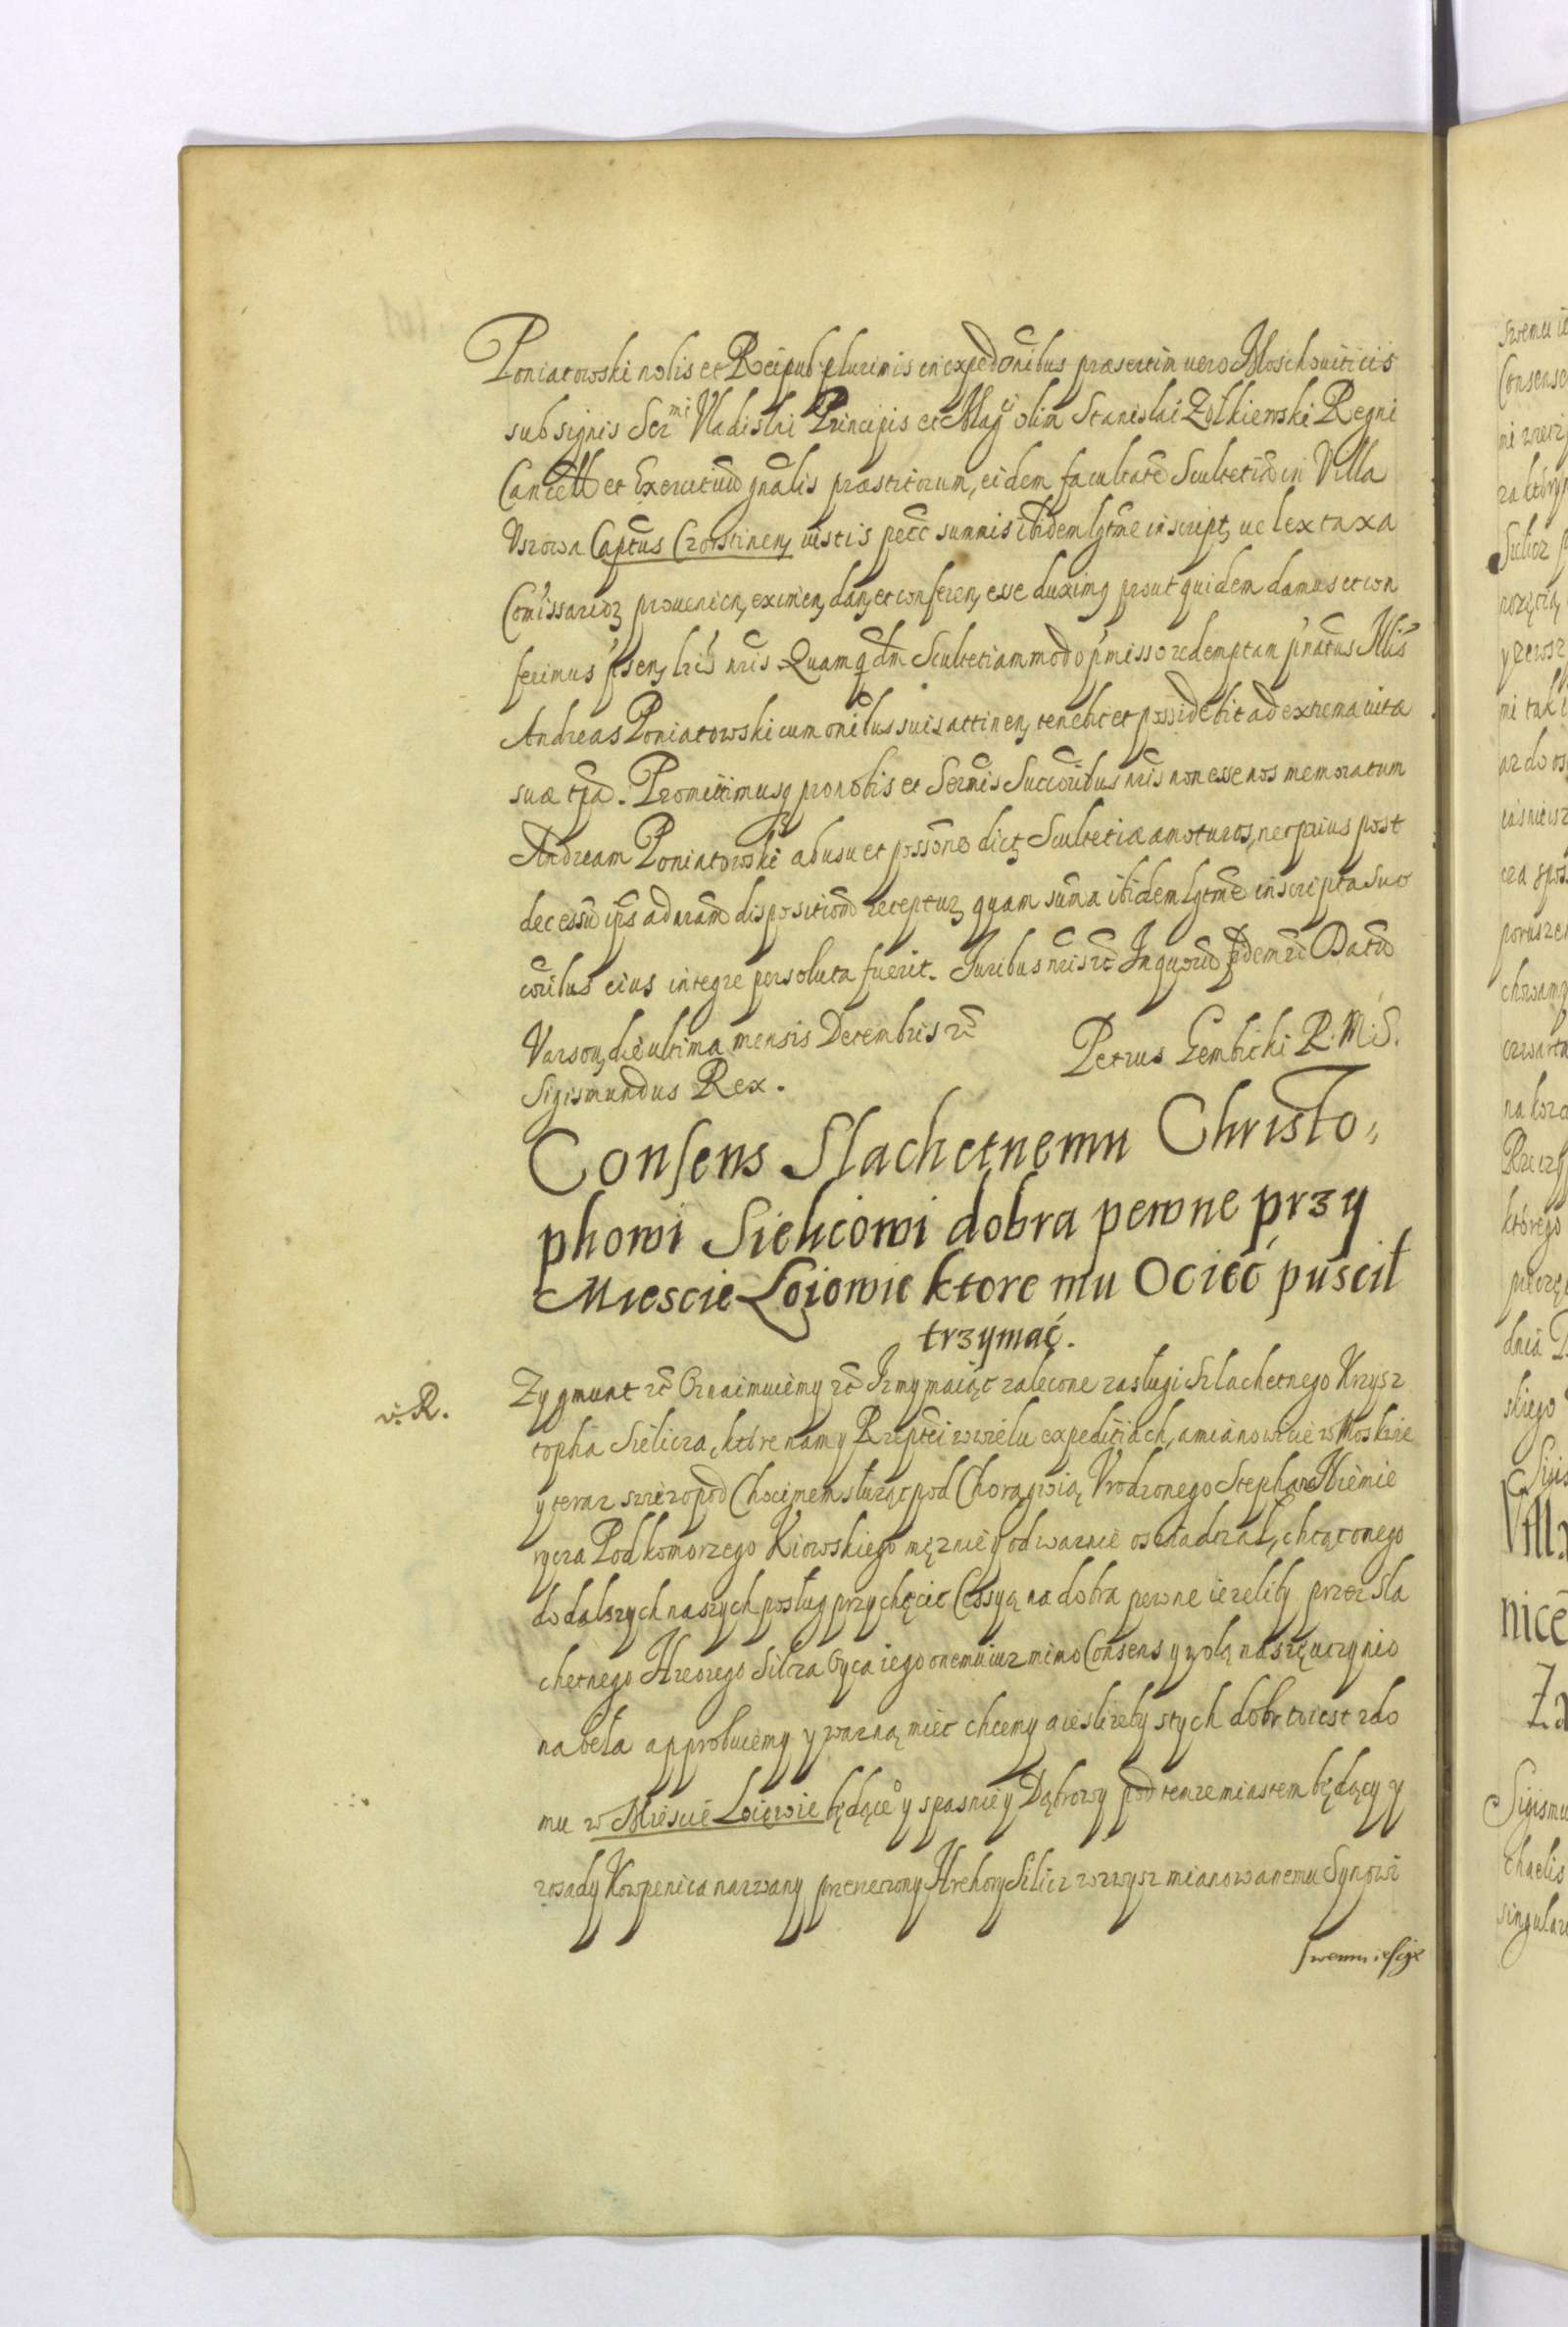 Poniatowski nobis et Reipub: plurimis in expedōnibus præsertim vero Moschouiticis
sub signis Ser^mi Vladislai Principis et Mag^ci olim Stanislai Zołkiewski Regni
Cancell et Exercituū gnālis præstitorum, eidem facultatē Scultetiā in Villa
Vszowa Captūs Czorstinen, iustis pecc summis ibidem lgtme inscript, uel ex taxa
Comīssarioꝝ prouenien, eximen, dan, et conferen, esse duximꝰ prout quidem damus et con
ferimus psen, lrīs nrīs. Quamq̄dm Scultetiam modo p̄misso redemptam p̄natus Nlis
Andreas Poniatowski cum oni᷇bus suis attinen, tenebit et possidebit ad extrema vitæ
suæ tp̄a. Promittimusq; pro nobis et Sermīs Succorībus nrīs non esse nos memoratum
Andream Poniatowski ab usu et possōne dict, Scultetiæ amoturos, nec prius post
decessū ipīs ad nram̄ dispositionē receptur, quam sum̄a ibidem lgtme inscripta Suc
corībus eius integre persoluta fuerit. Juribus nrīs rc̄ In quorū fidem rc̄ Datū
Varsou, die ultima mensis Decembris rc̄ Petrus Gembicki R. M. S.
Sigismundus Rex.
Consens Slachetnemu Christo,,
phowi Sielicowi dobra pewne przy
Miescie Loiowie ktore mu Ociec puscił
trzymać.
v. R.
Zygmunt rc̄ Oznaimuiemy rc̄ Iz my maiąc zalecone zasługi Szlachetnego Krzysz
topha Sielicza, które nam y Rzeptēi w wielu expeditiach, a mianowicie w Moskwie
y teraz swiezo pod Chocimem służąc pod Chorągwią Vrodzonego Stephana Niemie
rycza Podkomorzego Kiowskiego mężnie y odwaznie oswiadczał, chcąc onego
do dalszych naszych posług przychęcic Cessyą na dobra pewne iezeliby przez Sla
chetnego Hreorego Silcza Oyca iego onemu iuz mimo Consens y wolą naszę uczynio
na beła approbuiemy y wazną miec chcemy a iesliżeby s tych dobr to iest z do
mu w Miescie Loiowie będące° y s pasnie y Dąbrowy pod temze miastem będący y
z osady Kowpenica nazwany przerzeczony Hrehory Silicz wzwysz mianowanemu Synowi
swemu iescze